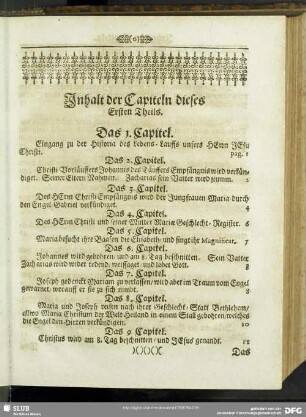 Inhalt der Capiteln dieses
Ersten Theils.
Das 1. Capitel.
Eingang zu der Historia des Lebens-Lauffs unsers HErrn JEsu
Christi. pag. 1
Das 2. Capitel.
Christi Vorläuffers Johannes des Täuffers Empfängnis wird verkün-
diget. Seiner Eltern Nahmen. Zacharias sein Vatter wird stumm. 2
Das 3. Capitel.
Des HErrn Christi Empfängnis wird der Jungfrauen Maria durch
den Engel Gabriel verkündiget.
Das 4. Capitel.
Des HErrn Christi und seiner Mutter Mariæ Geschlecht-Register. 6
Das 5. Capitel.
Maria besucht ihre Baasen die Elisabeth und singt ihr Magnificat. 7
Das 6. Capitel.
Johannes wird gebohren, und am 8. Tag beschnitten. Sein Vatter
Zacharias wird wider redend, weissaget, und lobet Gott. 8
Das 7. Capitel.
Joseph gedenckt Mariam zu verlassen, wird aber im Traum vom Engel
gewarnet, worauff er sie zu sich nimbt.
Das 8. Capitel.
Maria und Joseph reisen nach ihrer Geschlecht-Statt Bethlehem,
allwo Maria Christum der Welt-Heiland in einem Stall gebohren, welches
die Engel den Hirten verkündigen. 10
Das 9. Capitel.
Christus wird am 8. Tag beschnitten, und JEsus genandt.
Das
SLUB